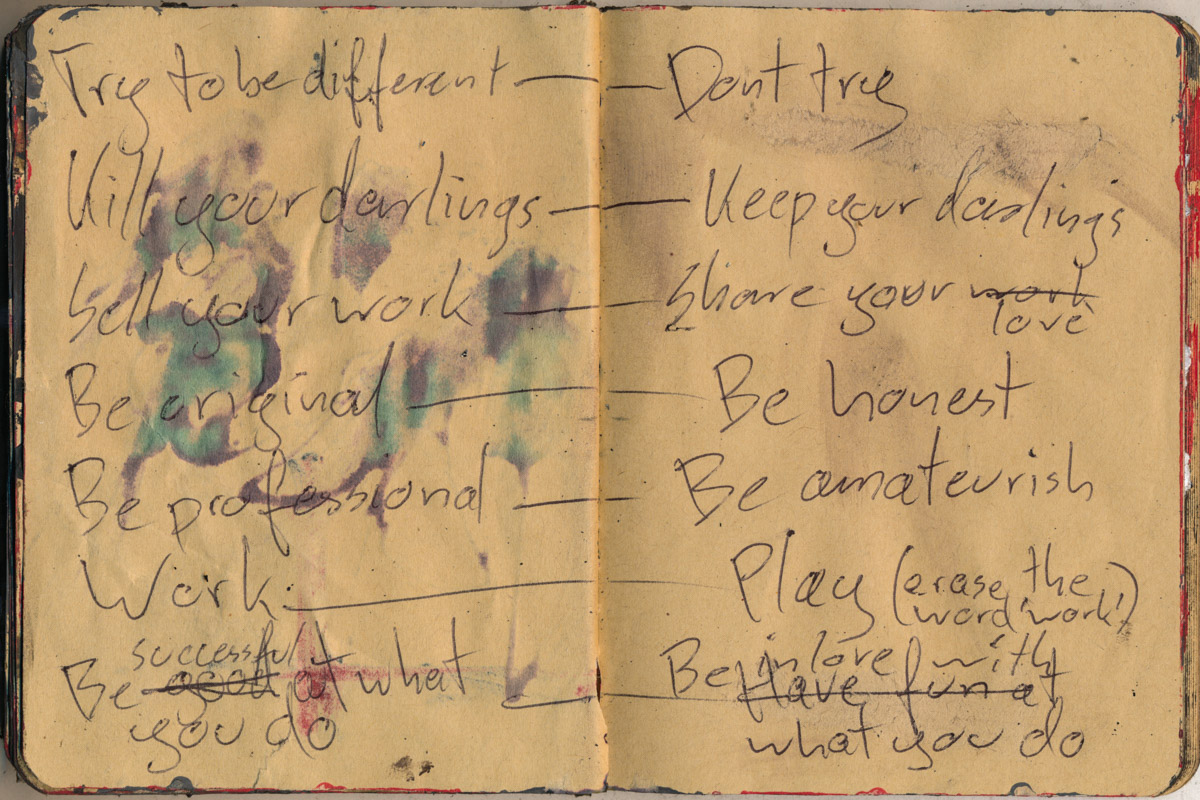 Try to be different — — Dont try
Kill your darlings — — Keep your darlings
Sell your work — — Share your ~~work~~
love
Be original — — Be honest
Be professional — — Be amateurish
Work — — Play (erase the
word 'work')
successful
Be ~~good~~ at what
you do —
in love with
Be ~~Have fun at~~
what you do